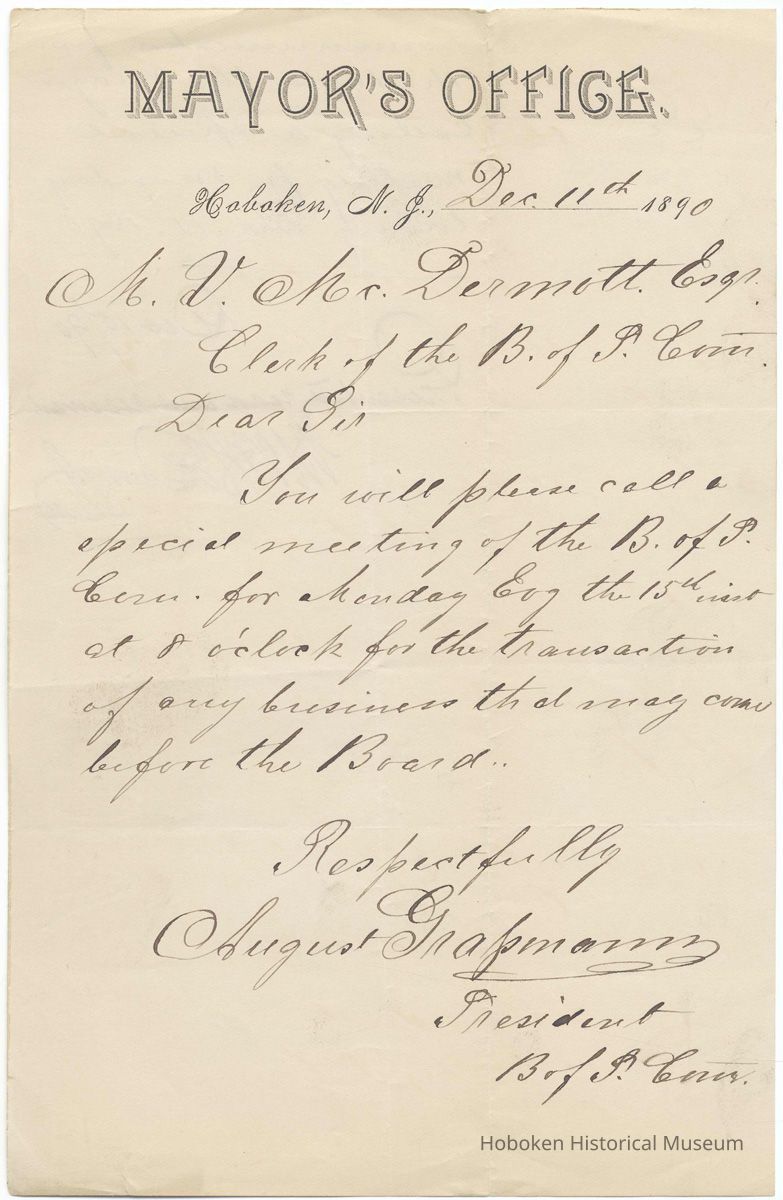 MAYOR'S OFFICE.
Hoboken, N. J., Dec. 11th 1890
M. V. Mc. Dermott. Esqr.
Clerk of the B. of P. Com.
Dear Sir
You will please call a
special meeting of the B. of P.
Com. for Monday Evg the 15th inst
at 8 o'clock for the transaction
of any business that may come
before the Board..
Respectfully
August Graßmann
President
B of P. Com.
Hoboken Historical Museum